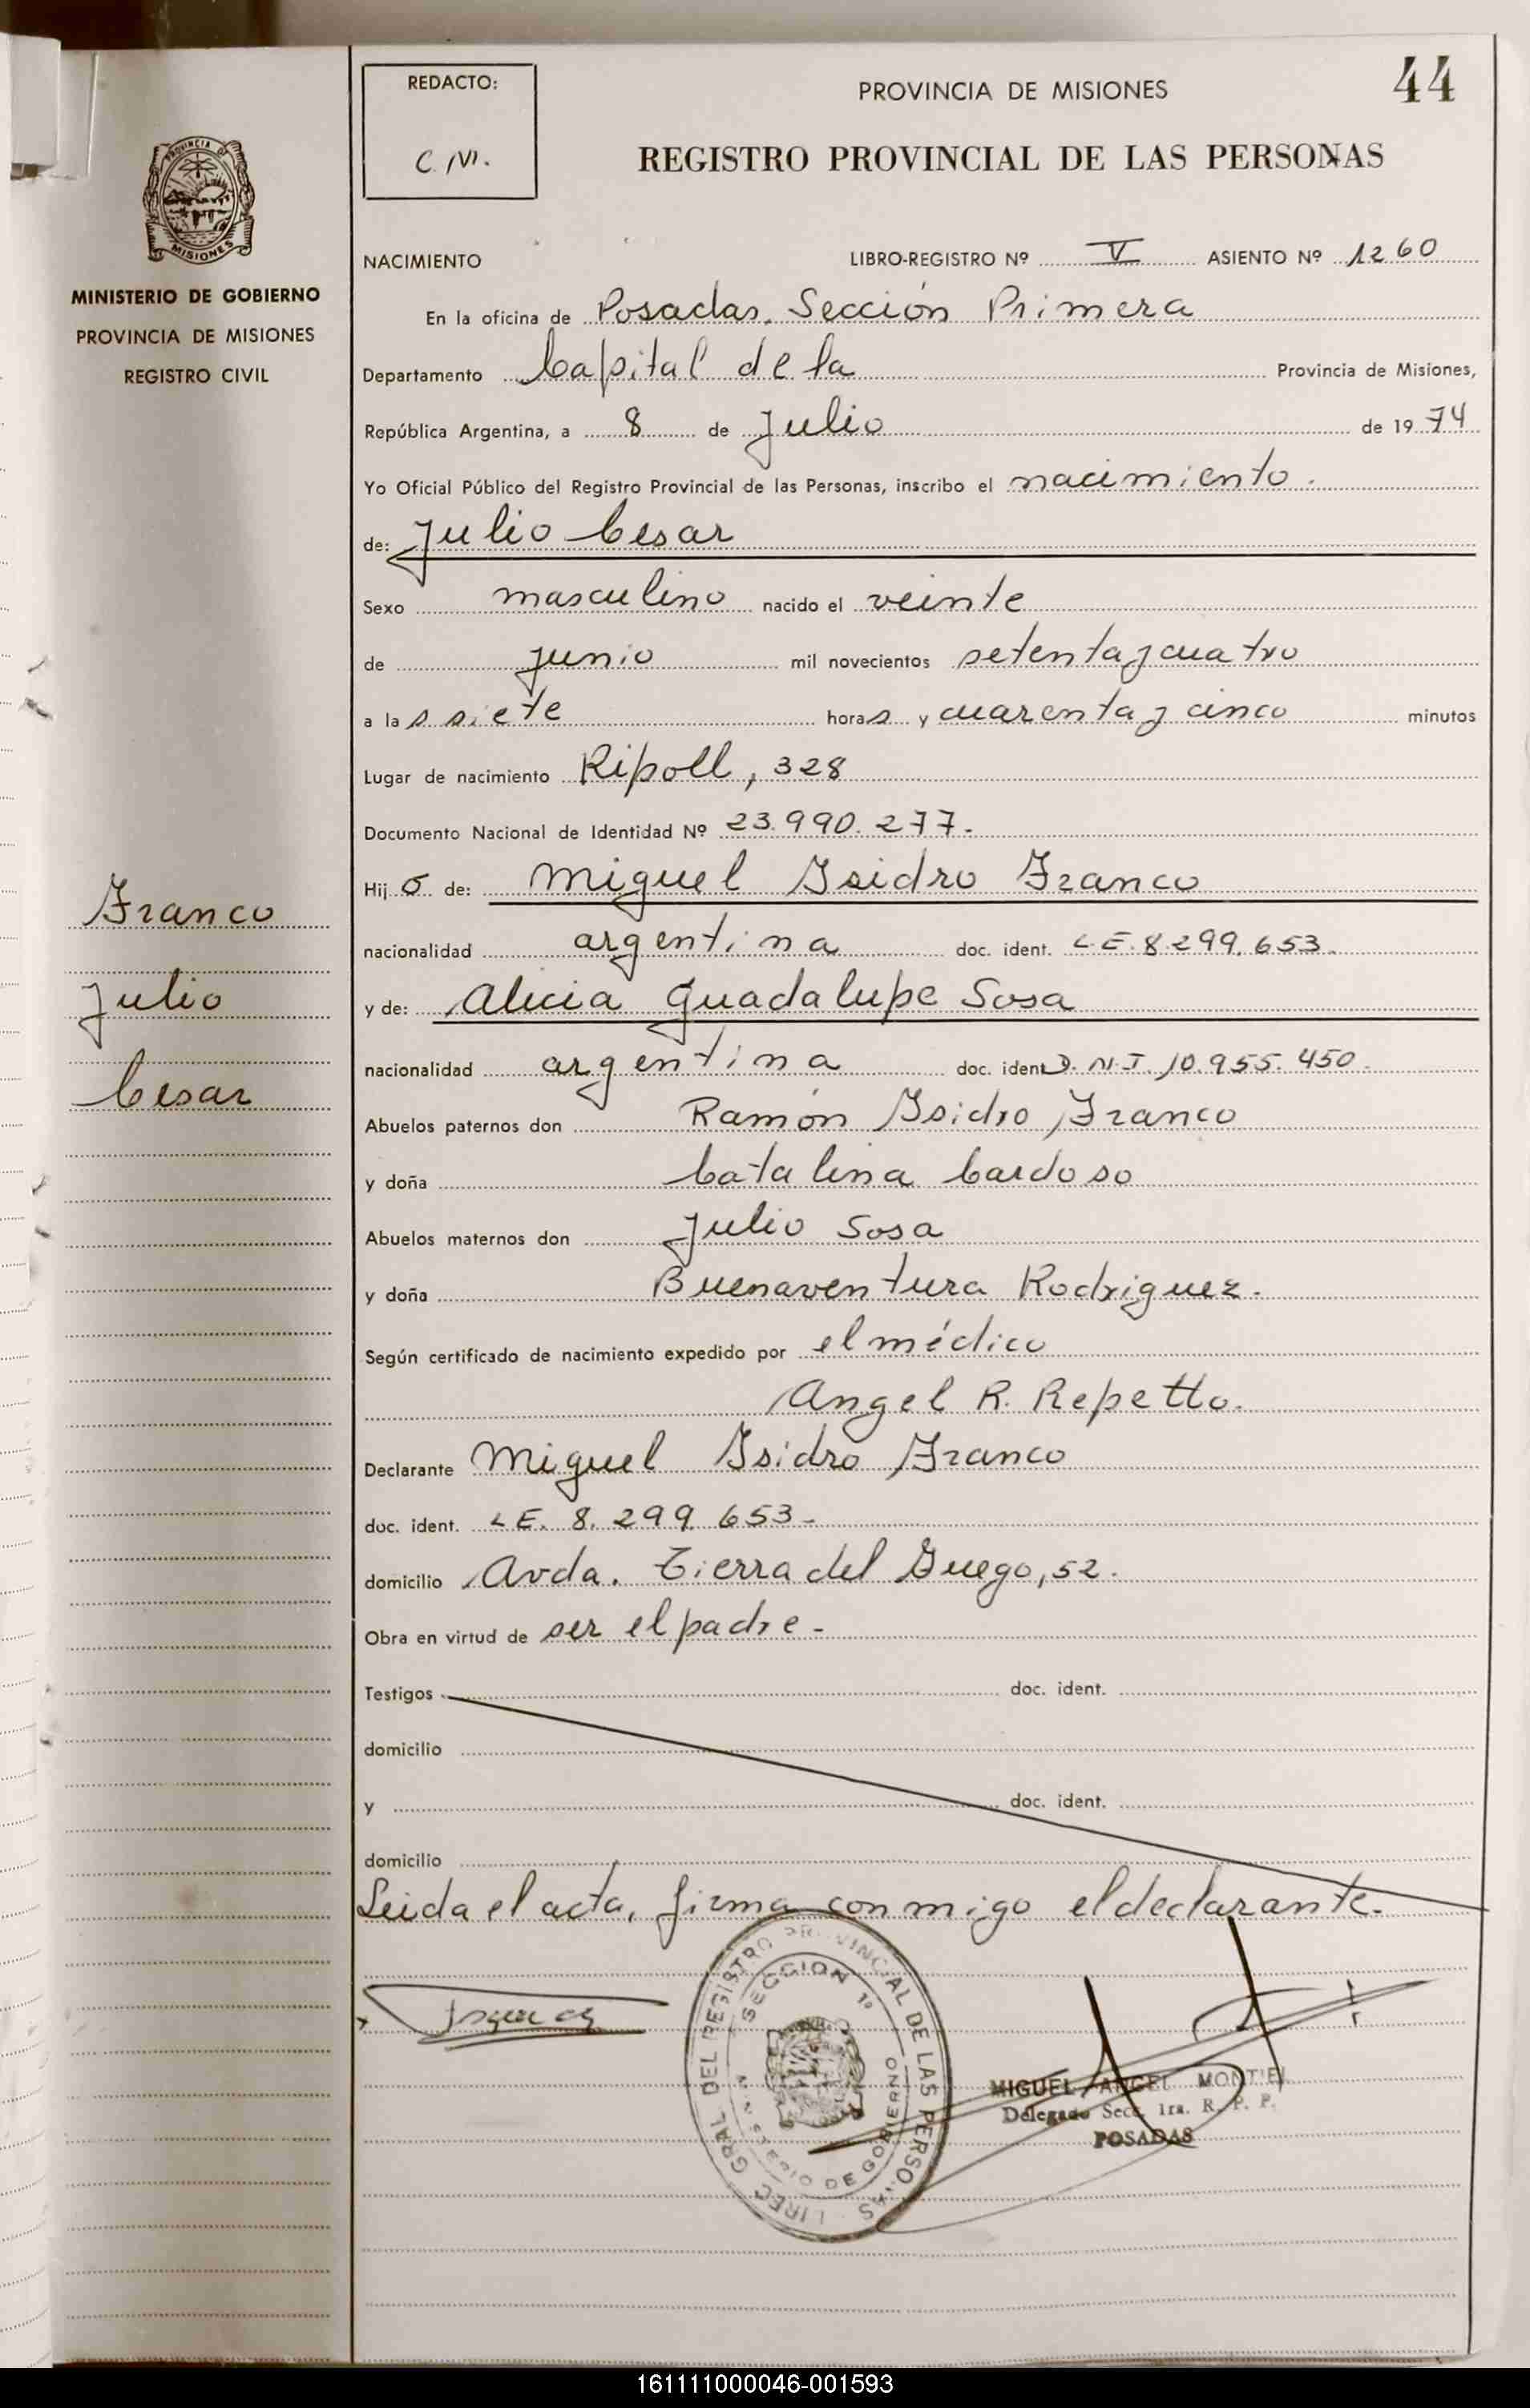 44
REDACTO:
PROVINCIA DE MISIONES
REGISTRO PROVINCIAL DE LAS PERSONAS
MISIONES
MINISTERIO DE GOBIERNO
PROVINCIA DE MISIONES
REGISTRO CIVIL
NACIMIENTO LIBRO-REGISTRO Nº V ASIENTO Nº 1260
En la oficina de Posadas, Sección Primera
Departamento Capital de la Provincia de Misiones,
República Argentina, a 8 de Julio de 1974
Yo Oficial Público del Registro Provincial de las Personas, inscribo el nacimiento.
de: Julio Cesar
Sexo masculino nacido el veinte
de junio mil novecientos setenta y cuatro
a las siete horas y cuarenta y cinco minutos
Lugar de nacimiento Ripoll, 328
Documento Nacional de Identidad Nº 23.990.277.
Hijo de: Miguel Isidro Franco
nacionalidad argentina doc. ident. L.E. 8.299.653.
y de: Alicia Guadalupe Sosa
nacionalidad argentina doc. ident D.N.I. 10.955.450.
Abuelos paternos don Ramón Isidro Franco
y doña Catalina Cardoso
Abuelos maternos don Julio Sosa
y doña Buenaventura Rodriguez.
Según certificado de nacimiento expedido por el médico
Angel R. Repetto.
Declarante Miguel Isidro Franco
doc. ident. L.E. 8.299.653-
domicilio Avda. Tierra del Fuego, 52.
Obra en virtud de ser el padre-
Testigos doc. ident.
domicilio
y doc. ident.
domicilio
Leida el acta, firma conmigo el declarante.
Franco
Julio
Cesar
DIREC. GRAL. DEL REGISTRO PROVINCIAL DE LAS PERSONAS
SECCION 1º
MINISTERIO DE GOBIERNO
MIGUEL ANGEL MONTIEL
Delegado Secc. 1ra. R. P. P.
POSADAS
161111000046-001593